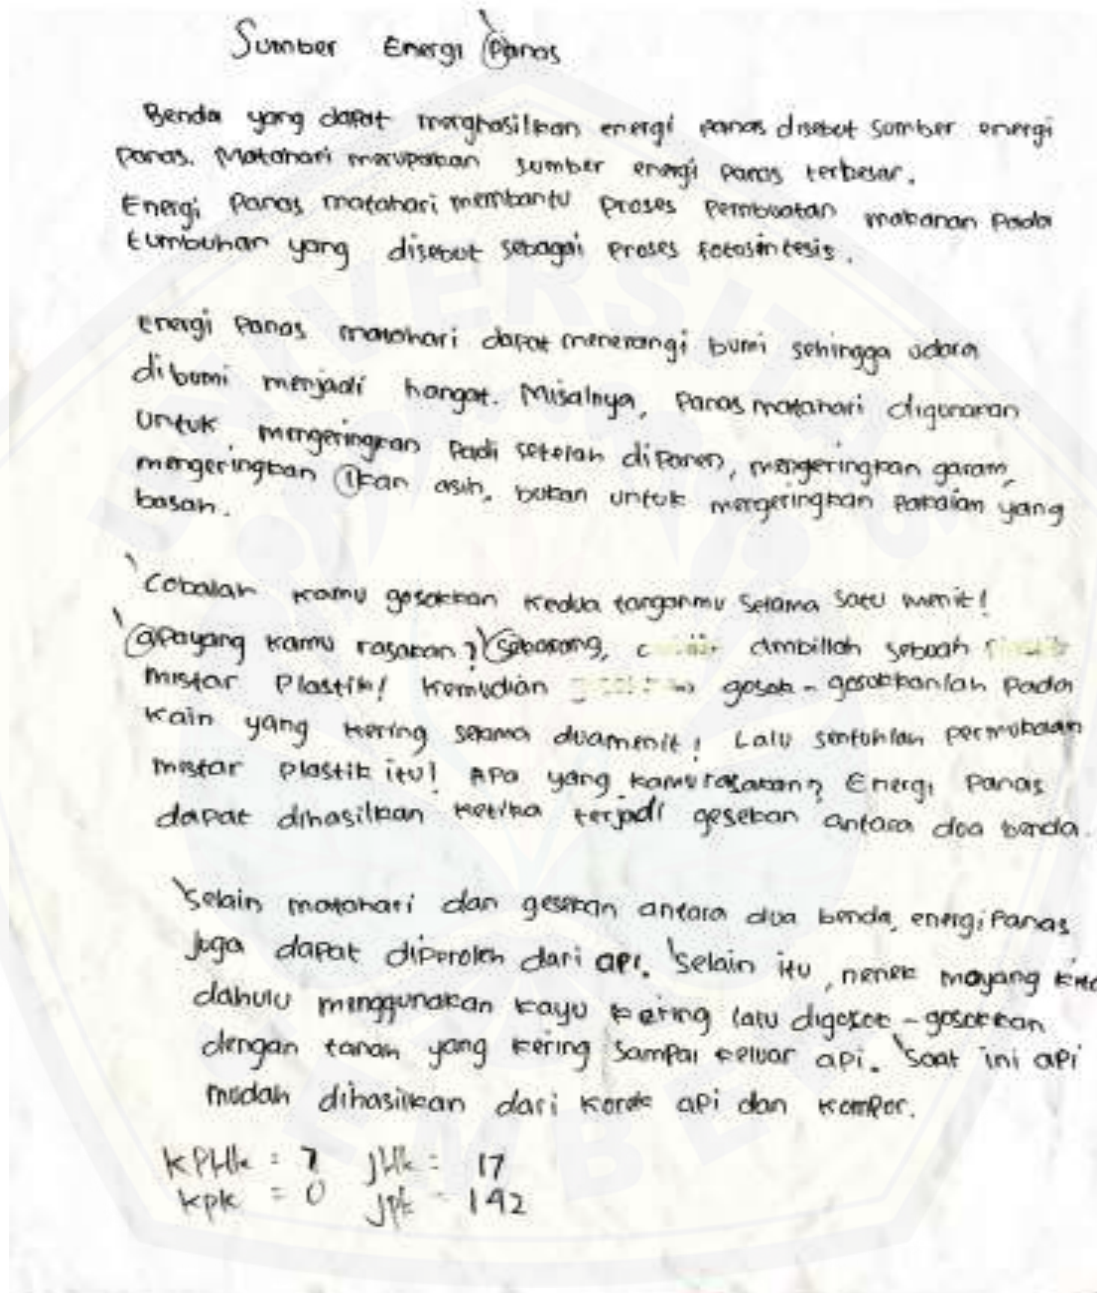 Sumber Energi Panas
Benda yang dapat menghasilkan energi panas disebut sumber energi
panas. Matahari merupakan sumber energi panas terbesar.
Energi Panas matahari membantu proses pembuatan makanan pada
tumbuhan yang disebut sebagai proses fotosintesis.
Energi Panas matahari dapat menerangi bumi sehingga udara
dibumi menjadi hangat. Misalnya, panas matahari digunakan
untuk mengeringkan padi setelah dipanen, mengeringkan garam,
mengeringkan ikan asin, bukan untuk mengeringkan pakaian yang
basah.
Cobalah kamu gosokkan kedua tanganmu selama satu menit!
apayang kamu rasakan? Sekarang, ambillah sebuah
mistar plastik! Kemudian gosok-gosokkanlah pada
kain yang kering selama duamenit! Lalu sentuhlah permukaan
mistar plastik itu! Apa yang kamu rasakan? Energi panas
dapat dihasilkan ketika terjadi gesekan antara dua benda.
Selain matahari dan gesekan antara dua benda, energi panas
juga dapat diperoleh dari api. Selain itu, nenek moyang
dahulu menggunakan kayu kering lalu digosok-gosokkan
dengan tanah yang kering sampai keluar api. Saat ini api
mudah dihasilkan dari korek api dan kompor.
= 7 = 17
kpk = 0 jpk = 142
UNIVERSITAS
JEMBER